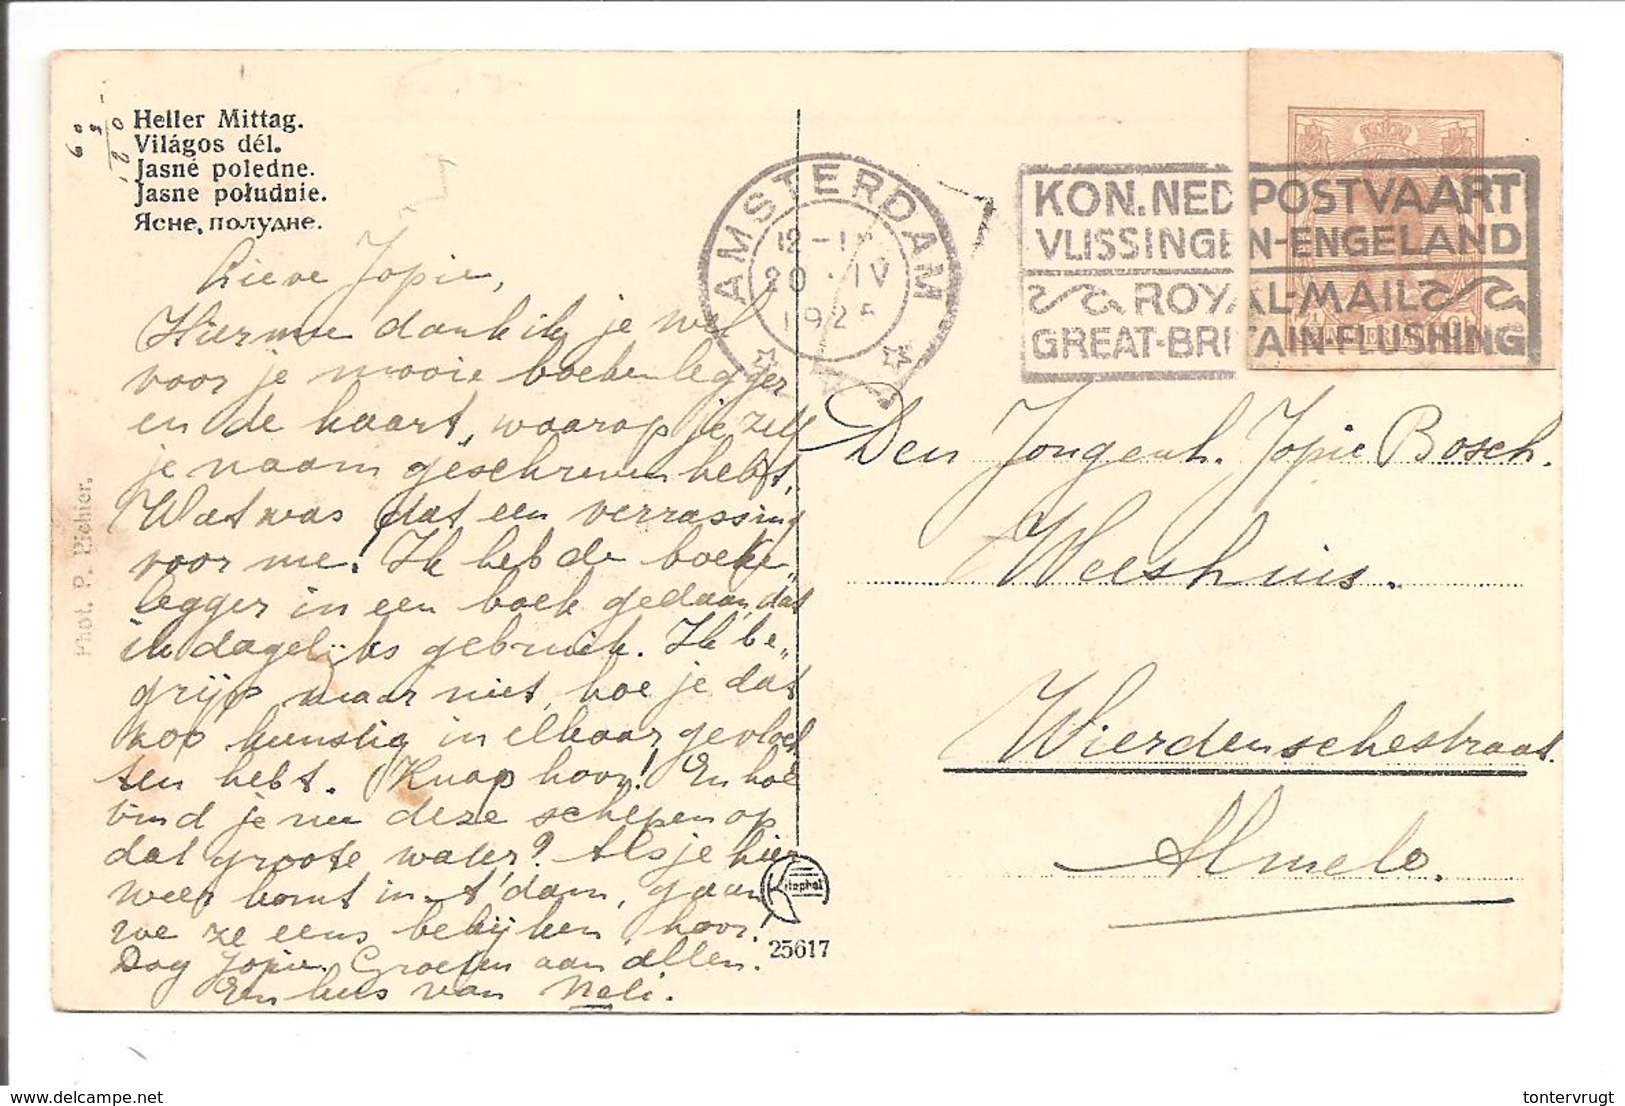 Heller Mittag.
Világos dél.
Jasné poledne.
Jasne południe.
Ясне, полудне.
60
Phot. P. Richier.
Lieve Jopie,
Hiermee dank ik je wel
voor je mooie boekenlegger
en de kaart, waarop je zelf
je naam geschreven hebt.
Wat was dat een verrassing
voor me! Ik heb de boeke„
legger in een boek gedaan, dat
ik dagelijks gebruik. Ik be„
grijp maar niet, hoe je dat
zoo kunstig in elkaar gevloch
ten hebt. Knap hoor! En hoe
vind je nu deze schepen op
dat groote water? Als je hier
weer komt in A'dam, gaan
we ze eens bekijken, hoor!
Dag Jopie. Groeten aan allen.
En kus van Neli.
25617
AMSTERDAM
20 IV
KON. NED. POSTVAART
VLISSINGEN-ENGELAND
ROYAL-MAIL
GREAT-BRITAIN-FLUSHING
Den Jongenh. Jopie Bosch.
Weeshuis.
Wierdenschestraat.
Almelo.
delcampe.net
tontervrugt